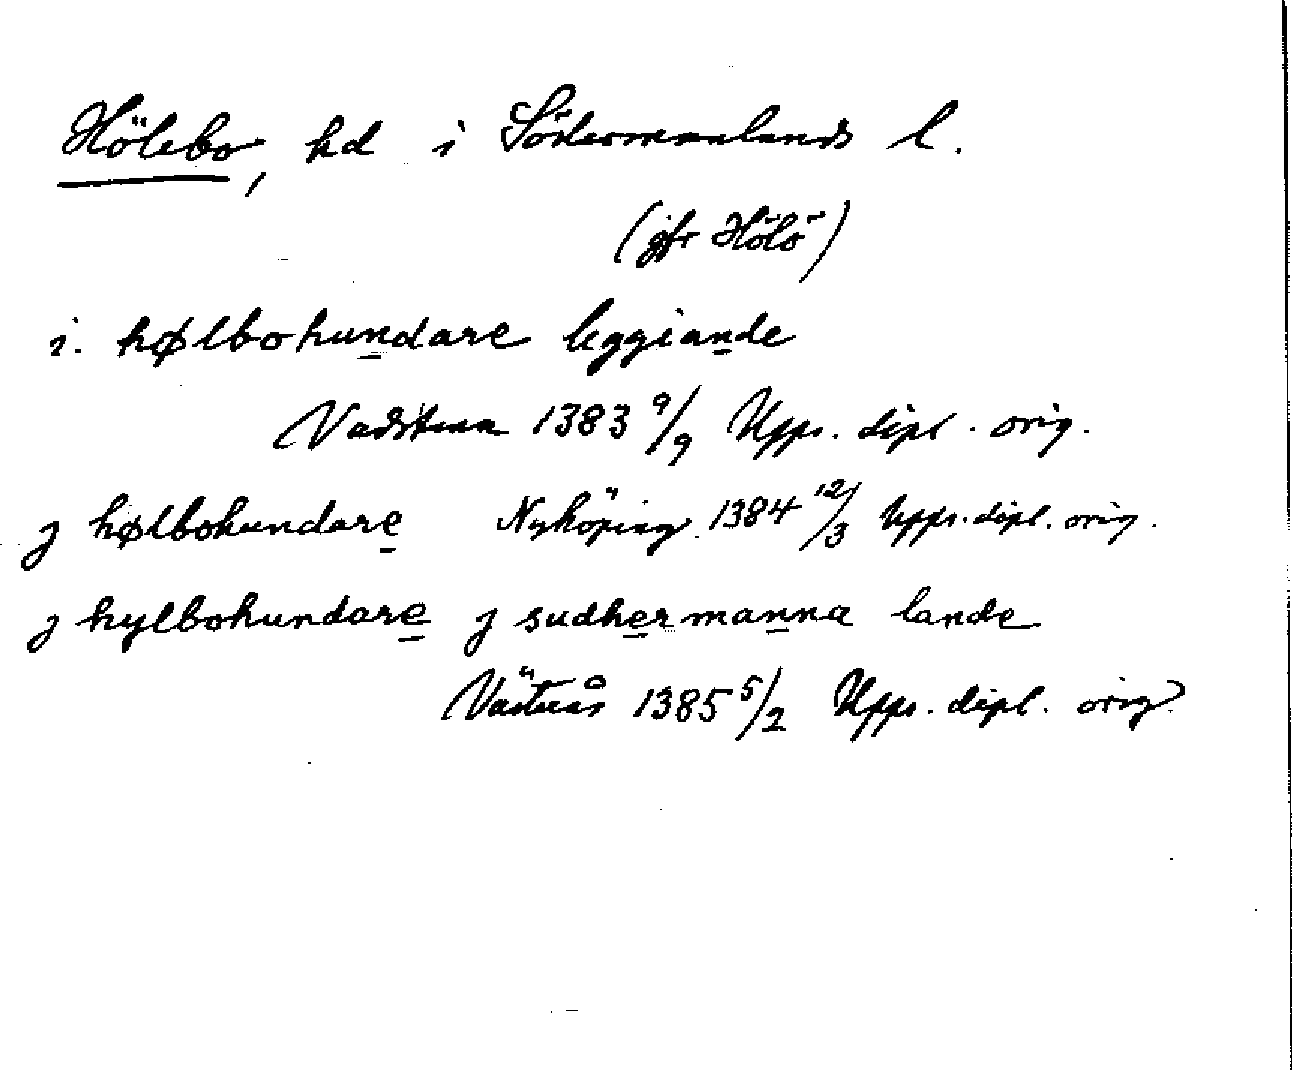 Hölebo, hd i Södermanlands l.
(jfr Hölö)
i. hølbohundare leggiande
Vadstena 1383 9/9 Upps. dipl. orig.
j hølbohundare Nyköping 1384 12/3 Upps. dipl. orig.
j hylbohundare j sudhermanna lande
Västerås 1385 5/2 Upps. dipl. orig